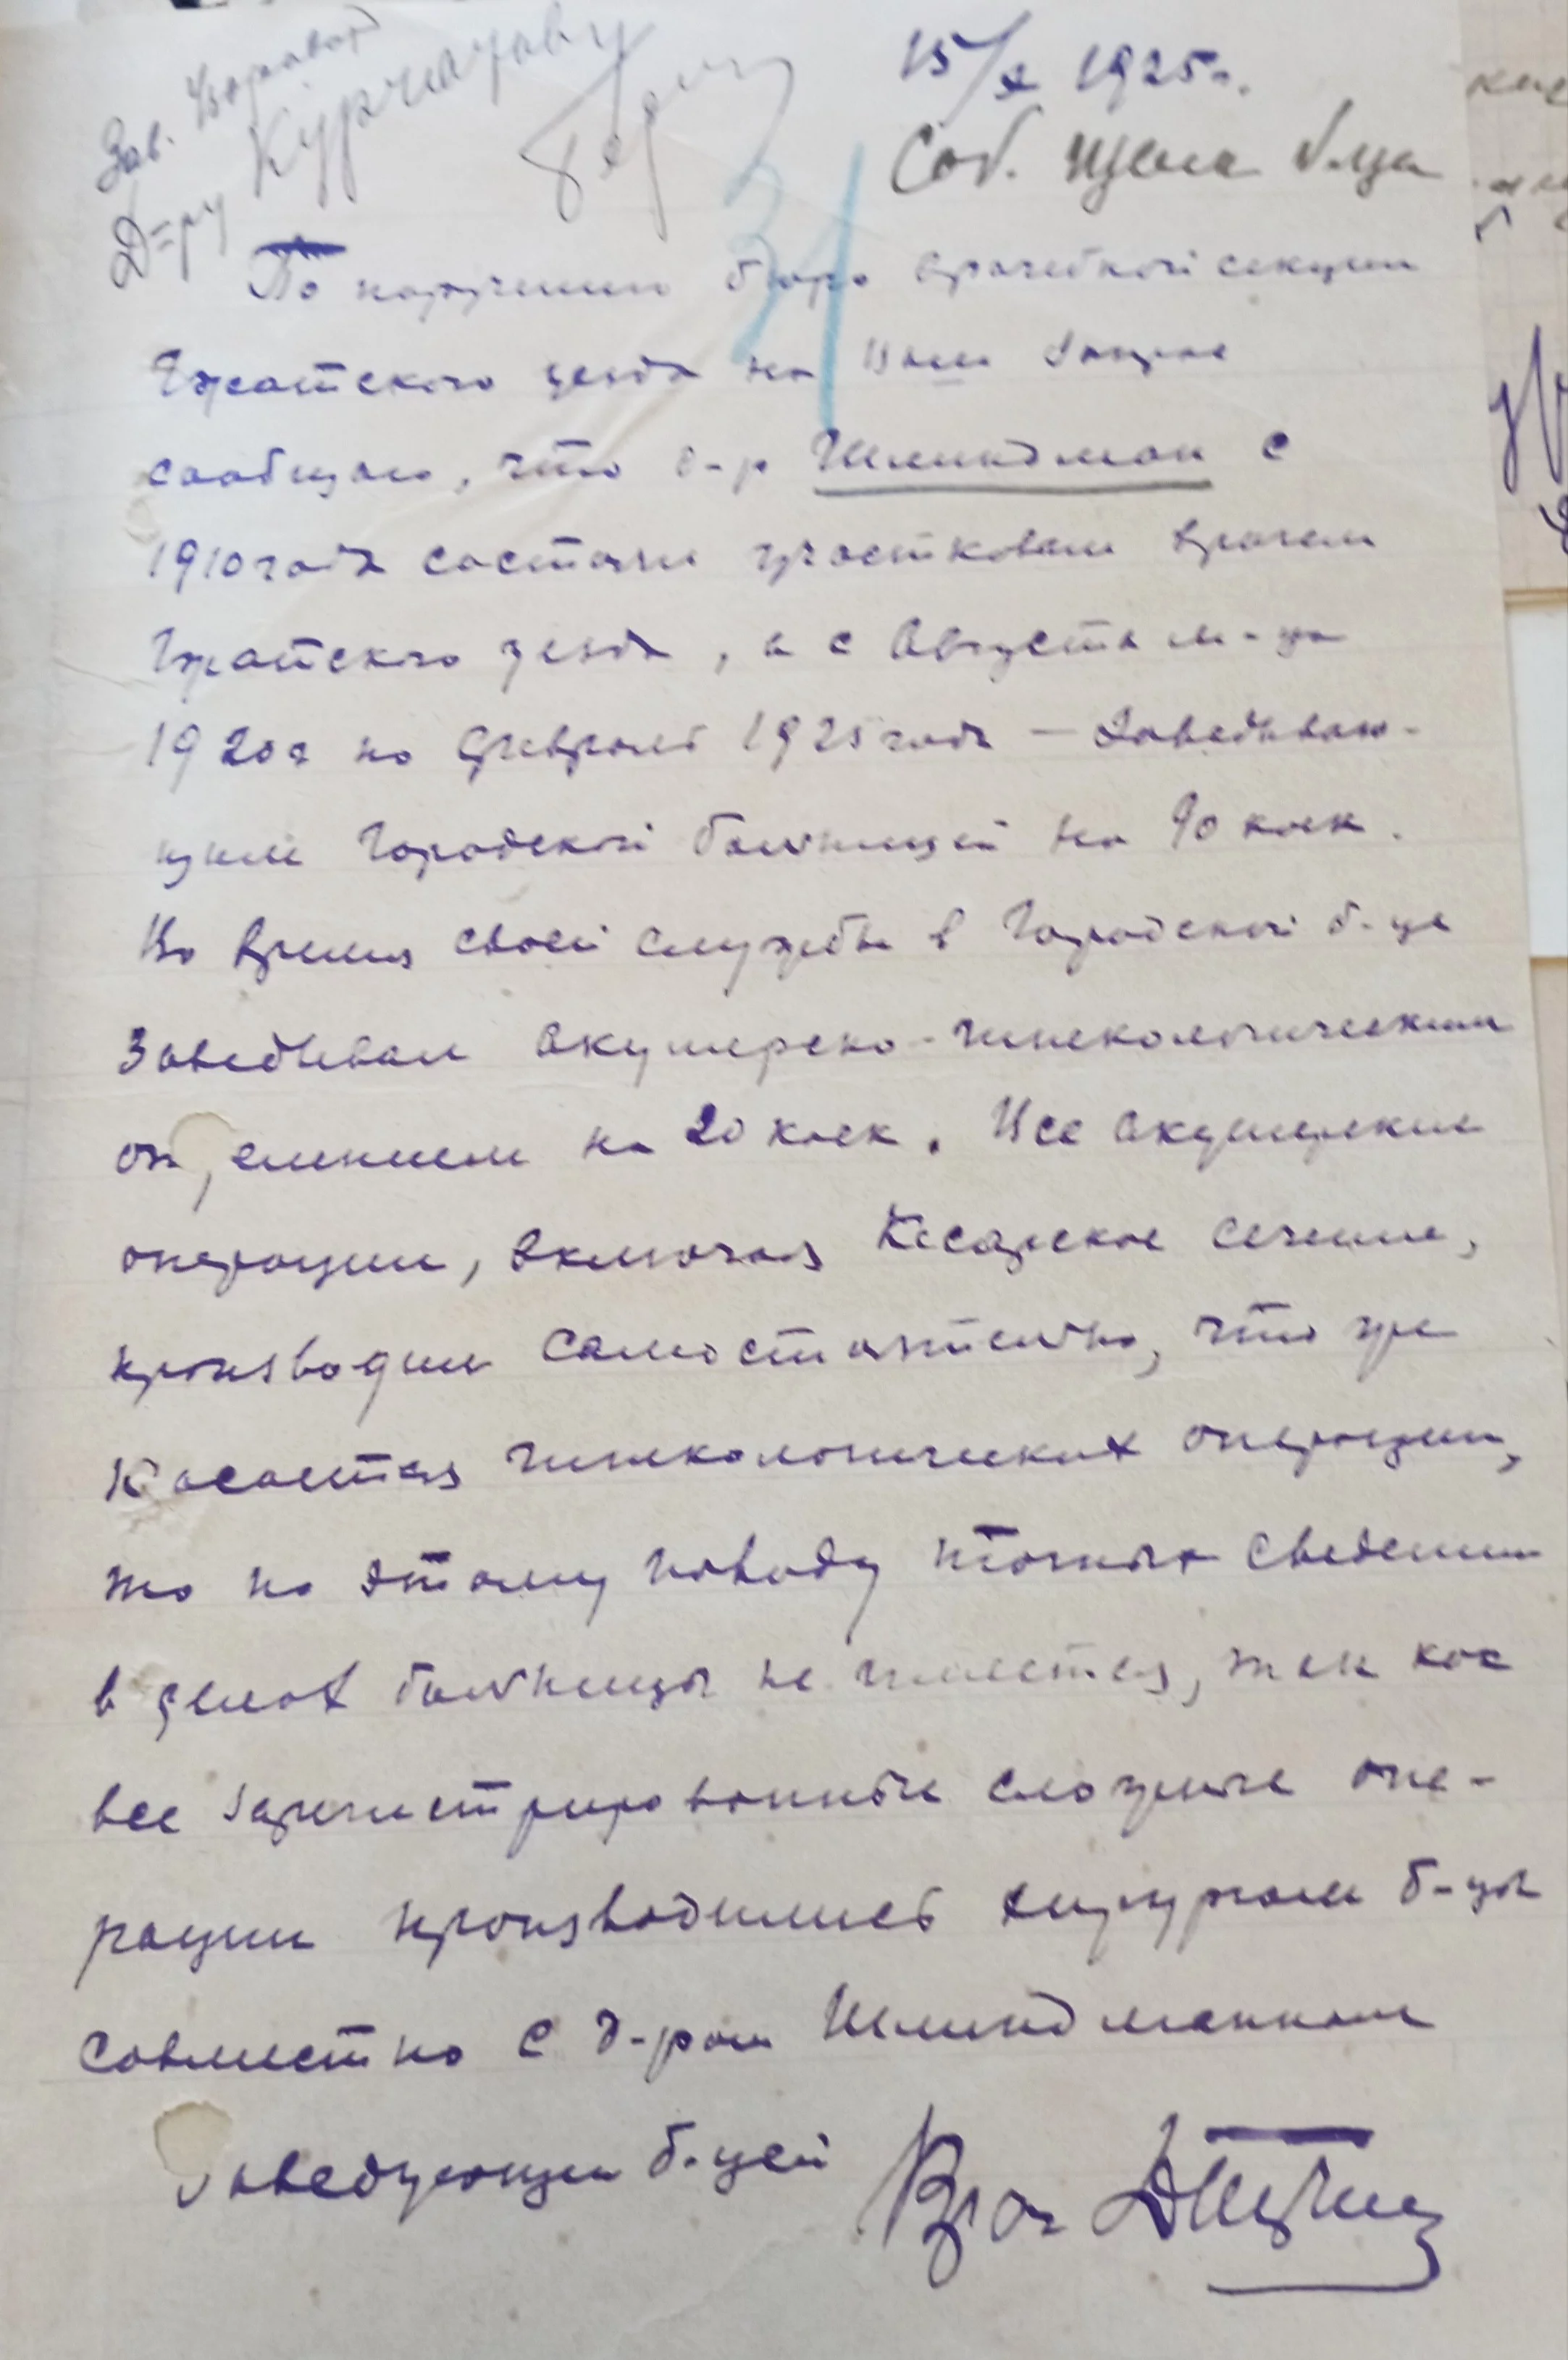 Зав.
Д=ру Курчатову
15/X 1925 г.
Соб.
31
По поручению бюро врачебной секции
Гжатского уезда на Ваш запрос
сообщаю, что д-р Шлиндман с
1910 года состоял участковым врачем
Гжатского уезда, а с Августа м-ца
1920 г по Февраль 1925 года — Заведываю-
щим Городской больницей на 90 коек.
Во время своей службы в Городской б-це
Заведывал акушерско-гинекологическим
отделением на 20 коек. Все акушерские
операции, включая Кесарское сечение,
производил самостоятельно, что же
касается гинекологических операции,
то по этому поводу точных сведении
в делах больницы не имеется, так как
все зарегистрированные сложные опе-
рации производились хирургом б-цы
совместно с д-ром Шлиндманном
Заведующий б-цей Врач